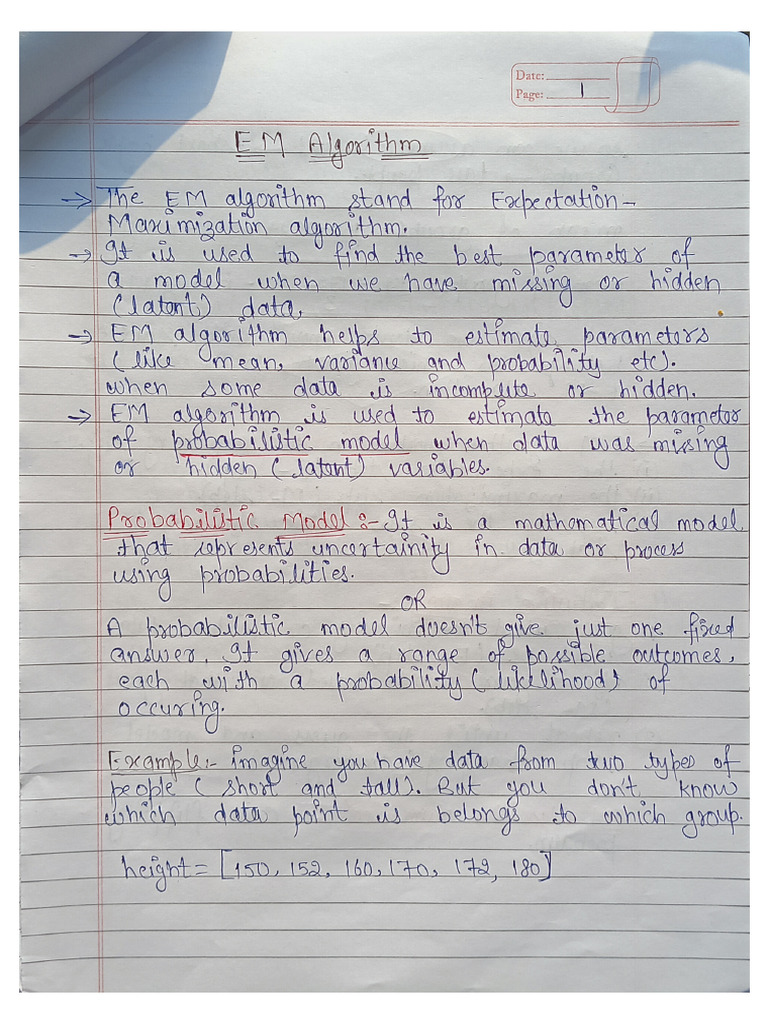 Date:
Page: 1
EM Algorithm
→ The EM algorithm stand for Expectation-
Maximization algorithm.
→ It is used to find the best parameter of
a model when we have missing or hidden
(latent) data.
→ EM algorithm helps to estimate parameters
(like mean, variance and probability etc).
when some data is incomplete or hidden.
→ EM algorithm is used to estimate the parameter
of probabilistic model when data was missing
or hidden (latent) variables.
Probabilistic Model :- It is a mathematical model
that represents uncertainity in data or process
using probabilities.
OR
A probabilistic model doesn't give just one fixed
answer. It gives a range of possible outcomes,
each with a probability (liklihood) of
occuring.
Example:- imagine you have data from two types of
people (short and tall). But you don't know
which data point is belongs to which group.
height = [150, 152, 160, 170, 172, 180]